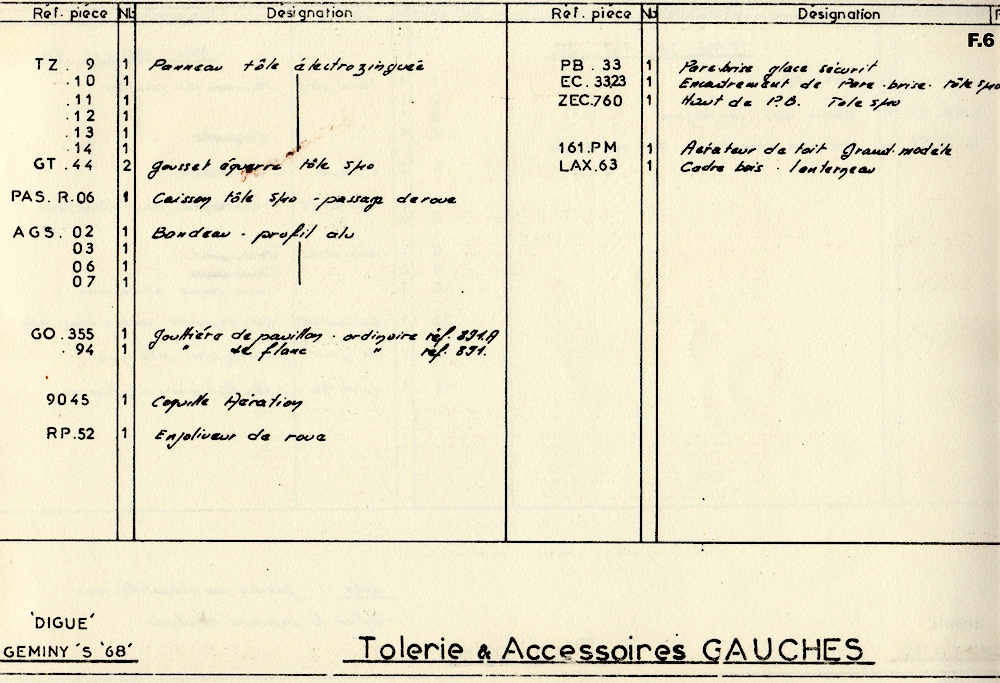 Réf. pièce Nb Désignation
TZ . 9 1 Panneau tôle électrozinguée
. 10 1
. 11 1
. 12 1
. 13 1
. 14 1
GT . 44 2 gousset équerre tôle spo
PAS. R.06 1 Caisson tôle spo - passage de roue
AGS. 02 1 Bandeau - profil alu
03 1
06 1
07 1
GO .355 1 gouttière de pavillon - ordinaire réf. 891.A
. 94 1 " de flanc " réf. 891.
9045 1 Coquille Aération
RP.52 1 Enjoliveur de roue
Réf. pièce Nb Désignation
F.6
PB. 33 1 Pare-brise glace sécurit
EC. 3323 1 Encadrement de Pare-brise. tôle spo
ZEC.760 1 Haut de P.B. Tole spo
161.PM 1 Aérateur de toit Grand. modèle
LAX.63 1 Cadre bois . lanterneau
'DIGUE'
GEMINY 'S '68'
Tolerie & Accessoires GAUCHES